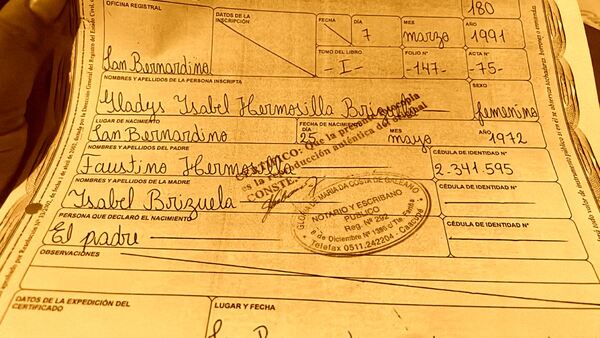 180
OFICINA REGISTRAL
DATOS DE LA INSCRIPCIÓN
FECHA
DÍA
MES
AÑO
7
marzo
1991
TOMO DEL LIBRO
FOLIO Nº
ACTA Nº
San Bernardino
-I-
-147-
-75-
NOMBRES Y APELLIDOS DE LA PERSONA INSCRIPTA
SEXO
Gladys Isabel Hermosilla Brizuela
femenino
LUGAR DE NACIMIENTO
FECHA DE NACIMIENTO
DÍA
MES
AÑO
San Bernardino
25
mayo
1972
NOMBRES Y APELLIDOS DEL PADRE
CÉDULA DE IDENTIDAD Nº
Faustino Hermosilla
2.341.595
NOMBRES Y APELLIDOS DE LA MADRE
CÉDULA DE IDENTIDAD Nº
Isabel Brizuela
PERSONA QUE DECLARÓ EL NACIMIENTO
CÉDULA DE IDENTIDAD Nº
El padre
OBSERVACIONES
DATOS DE LA EXPEDICIÓN DEL CERTIFICADO
LUGAR Y FECHA
que la presente fotocopia
es la reproducción auténtica del original
CONSTE
NOTARIO Y ESCRIBANO
PÚBLICO
Reg. Nº 292
Telefax 0511.242204